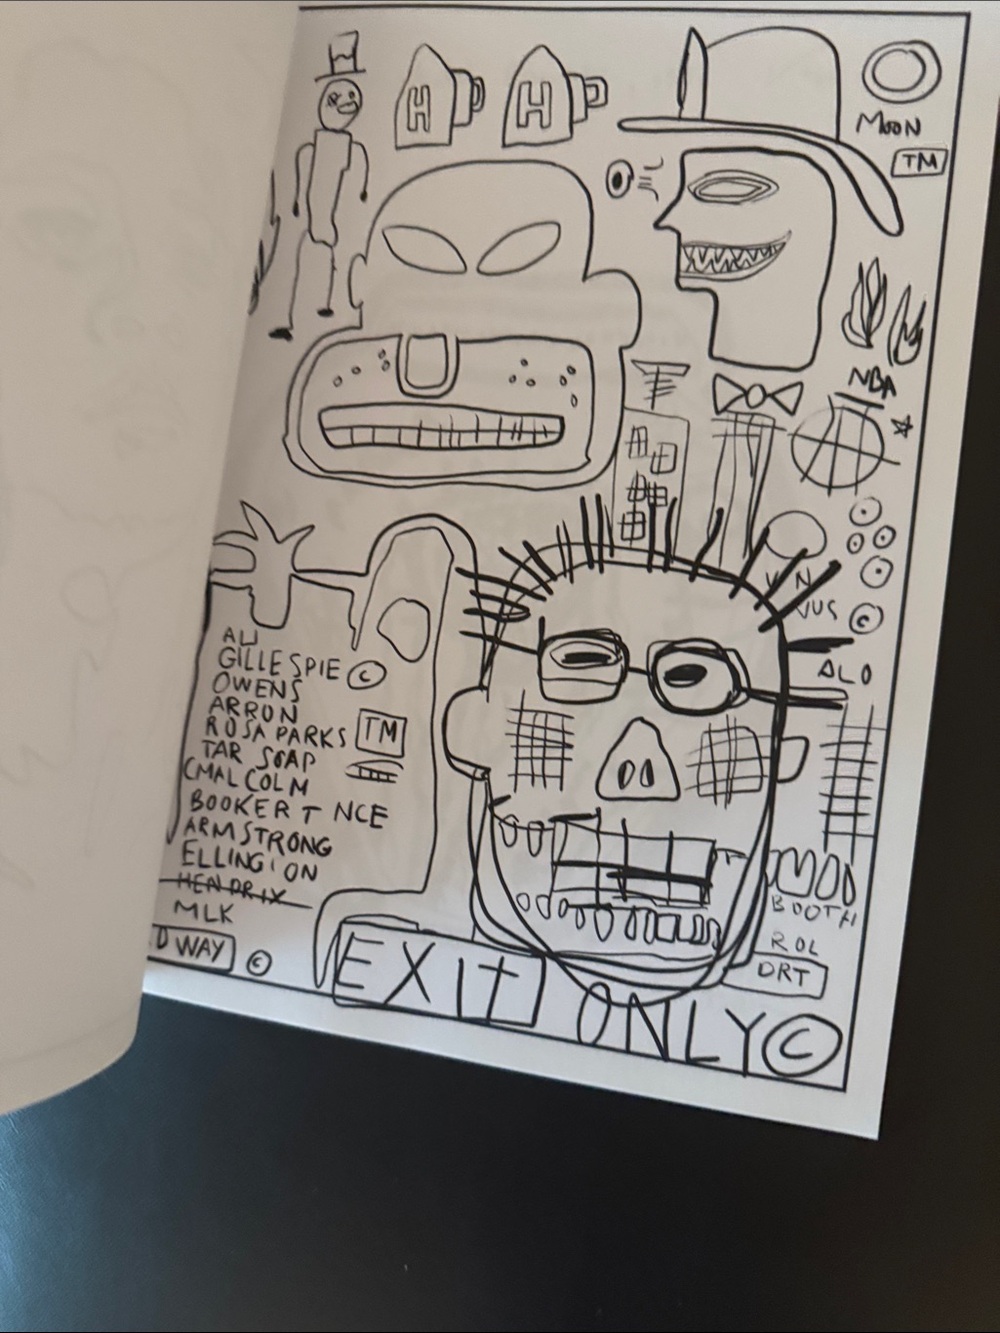 H
H
MOON
TM
NBA
VN
NUS ©
ALO
ALI
GILLESPIE ©
OWENS
ARRON
ROSA PARKS TM
TAR SOAP
CMALCOLM
BOOKER T NCE
ARMSTRONG
ELLINGTON
HENDRIX
MLK
D WAY ©
BOOTH
ROL
DRT
EXIT ONLY ©